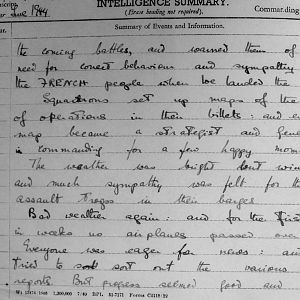 INTELLIGENCE SUMMARY.
(Erase heading not required).
Commanding
June 1944
Summary of Events and Information.
the coming battles, and warned them of
need for correct behaviour and sympathy
the FRENCH people when we landed the
Squadrons set up maps of the
of operations in their billets: and e
map became a strategist and Gene
in commanding for a few happy mom
The weather was bright but win
and much sympathy was felt for th
assault troops in their barges
Bad weather again: and for the first
in weeks no airplanes passed over
Everyone was eager for news: an
tried to sort out the various
reports. But progress seemed good and